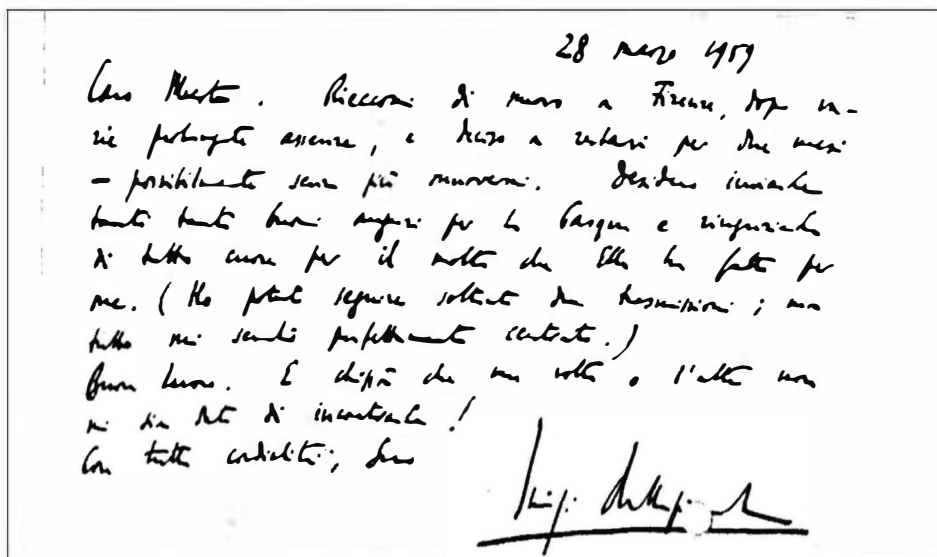 28 marzo 1959
Caro Maestro. Rieccomi di nuovo a Firenze, dopo va-
rie prolungate assenze, e deciso a restarci per due mesi
– possibilmente senza più muovermi. Desidero inviarLe
tanti tanti buoni auguri per la Pasqua e ringraziarLa
di tutto cuore per il molto che Ella ha fatto per
me. (Ho potuto seguire soltanto due trasmissioni; ma
tutto mi sembrò perfettamente centrato.)
Buon lavoro. E chissà che una volta o l'altra non
mi sia dato di incontrarLa!
Con tutta cordialità, Suo
Luigi Dallapiccola